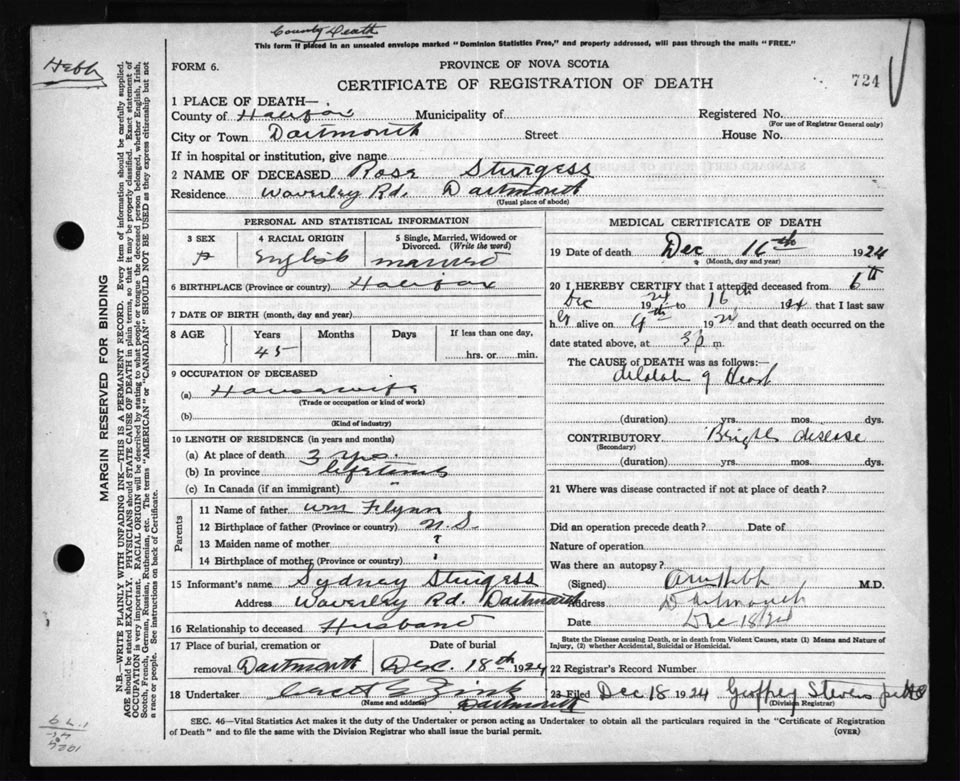 County Death
This form if placed in an unsealed envelope marked "Dominion Statistics Free," and properly addressed, will pass through the mails "FREE."
Hebb
FORM 6.
PROVINCE OF NOVA SCOTIA
CERTIFICATE OF REGISTRATION OF DEATH
724
1 PLACE OF DEATH—
County of Halifax Municipality of Registered No.
(For use of Registrar General only)
City or Town Dartmouth Street House No.
If in hospital or institution, give name
2 NAME OF DECEASED Rose Sturgess
Residence Waverley Rd. Dartmouth
(Usual place of abode)
PERSONAL AND STATISTICAL INFORMATION
3 SEX 4 RACIAL ORIGIN 5 Single, Married, Widowed or Divorced. (Write the word)
F English married
6 BIRTHPLACE (Province or country) Halifax
7 DATE OF BIRTH (month, day and year)
8 AGE Years Months Days If less than one day,
45 hrs. or min.
9 OCCUPATION OF DECEASED
(a) Housewife
(Trade or occupation or kind of work)
(b)
(Kind of industry)
10 LENGTH OF RESIDENCE (in years and months)
(a) At place of death 3 yrs.
(b) In province lifetime
(c) In Canada (if an immigrant) "
Parents
11 Name of father Wm Flynn
12 Birthplace of father (Province or country) N.S.
13 Maiden name of mother ?
14 Birthplace of mother (Province or country)
15 Informant's name Sydney Sturgess
Address Waverley Rd. Dartmouth
16 Relationship to deceased Husband
17 Place of burial, cremation or removal Dartmouth Date of burial Dec. 18th 1924
18 Undertaker Zink
(Name and address) Dartmouth
MEDICAL CERTIFICATE OF DEATH
19 Date of death Dec 16th 1924
(Month, day and year)
20 I HEREBY CERTIFY that I attended deceased from 6th
Dec 1924 to 16th 1924 that I last saw
her alive on 9th 1924 and that death occurred on the
date stated above, at 3 p m.
The CAUSE of DEATH was as follows:—
dilatation of Heart
(duration) yrs. mos. dys.
CONTRIBUTORY Brights disease
(Secondary)
(duration) yrs. mos. dys.
21 Where was disease contracted if not at place of death?
Did an operation precede death? Date of
Nature of operation
Was there an autopsy?
(Signed) Hebb M.D.
Address Dartmouth
Date Dec 18/24
State the Disease causing Death, or in death from Violent Causes, state (1) Means and Nature of Injury, (2) whether Accidental, Suicidal or Homicidal.
22 Registrar's Record Number
23 Filed Dec 18 1924 Geoffrey Stevens
(Division Registrar)
SEC. 46—Vital Statistics Act makes it the duty of the Undertaker or person acting as Undertaker to obtain all the particulars required in the "Certificate of Registration
of Death" and to file the same with the Division Registrar who shall issue the burial permit.
(OVER)
MARGIN RESERVED FOR BINDING
N.B.—WRITE PLAINLY WITH UNFADING INK—THIS IS A PERMANENT RECORD. Every item of information should be carefully supplied.
AGE should be stated EXACTLY. PHYSICIANS should STATE CAUSE OF DEATH in plain terms, so that it may be properly classified. Exact statement of
OCCUPATION is very important. RACIAL ORIGIN will be described by stating to what people or tongue the deceased person belonged, whether English, Irish,
Scotch, French, German, Russian, Ruthenian, etc. The terms "AMERICAN" or "CANADIAN" SHOULD NOT BE USED as they express citizenship but not
a race or people. See instructions on back of Certificate.